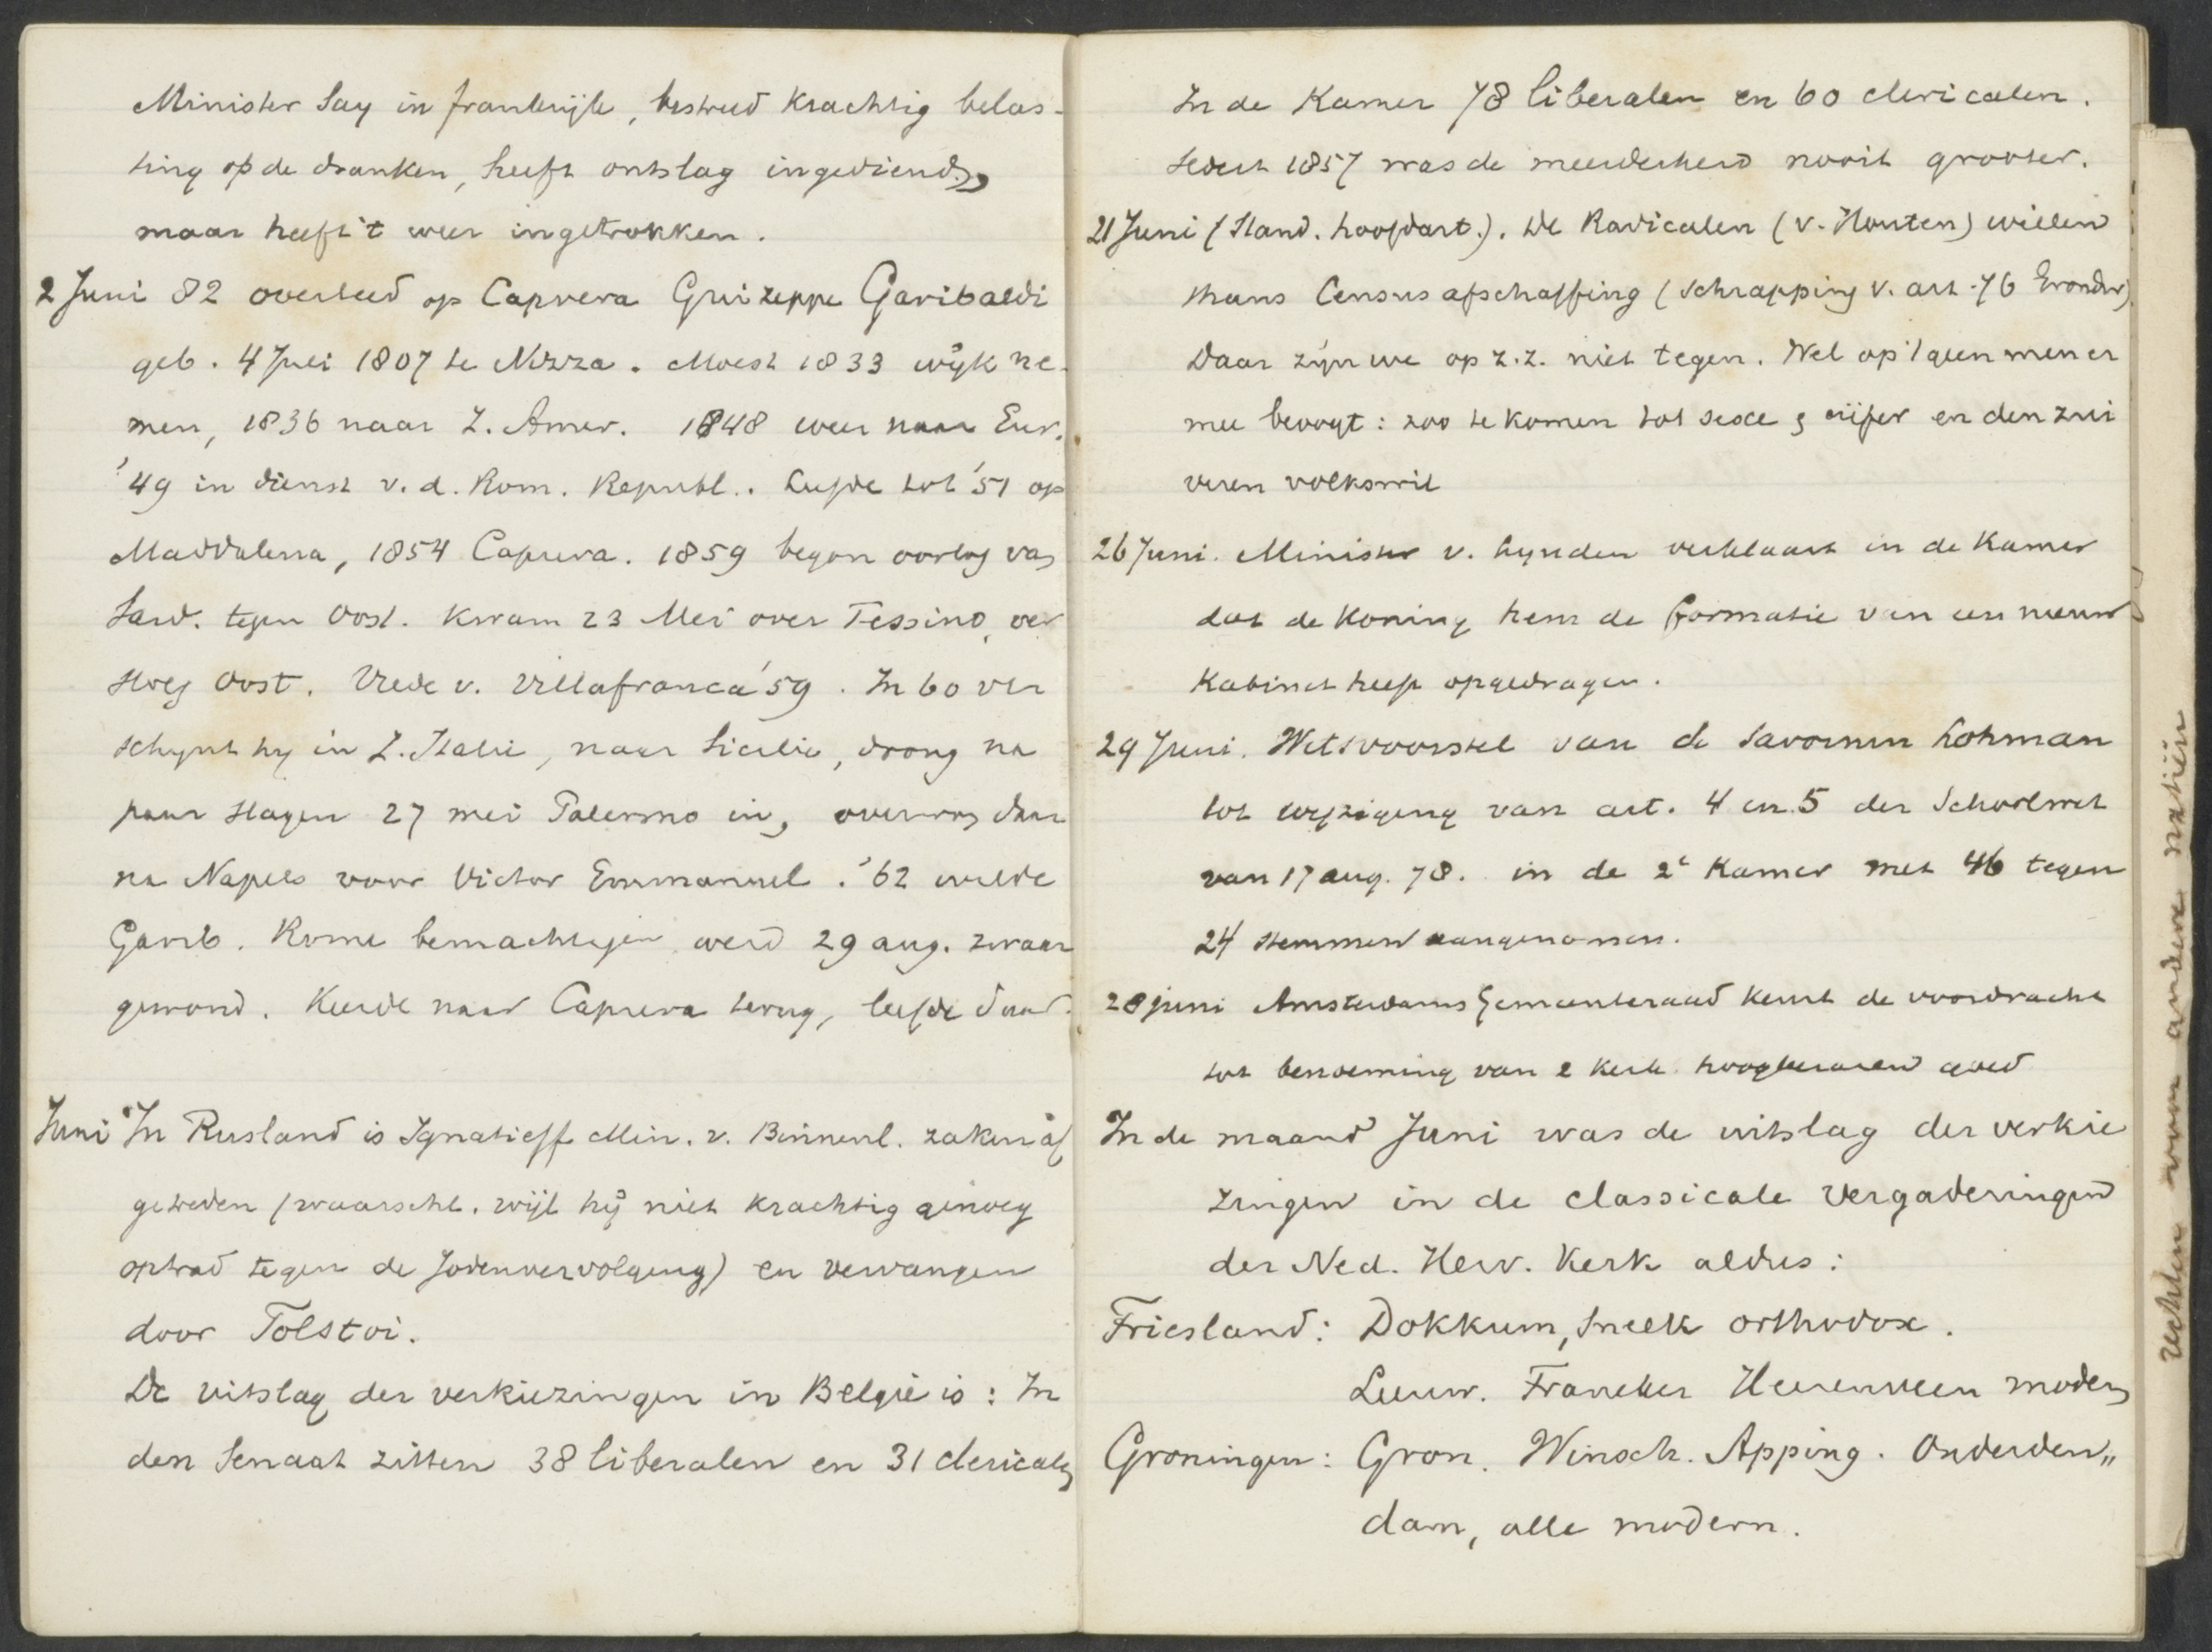 Minister Say in frankrijk, bestreed krachtig belas-
ting op de dranken, heeft ontslag ingediend,
maar heeft 't weer ingetrokken.
2 Juni 82 overleed op Caprera Guizeppe Garibaldi
geb. 4 Juli 1807 te Nizza. Moest 1833 wijk ne-
men, 1836 naar Z. Amer. 1848 weer naar Eur.
'49 in dienst v. d. Rom. Republ.. Leefde tot '51 op
Maddalena, 1854 Caprera. 1859 begon oorlog van
Sard. tegen Oost. Kwam 23 Mei over Tessino, ver
sloeg Oost. Vrede v. Villafranca '59. In 60 ver
schynt hy in Z. Italie, naar Sicilie, drong na
paar slagen 27 mei Palermo in, overwon daar
na Napels voor Victor Emmanuel. '62 wilde
Garib. Rome bemachtigen werd 29 aug. zwaar
gewond. Keerde naar Caprera terug, leefde daar.
Juni In Rusland is Ignatieff Min. v. Binnenl. zaken af
getreden (waarschl. wijl hij niet krachtig genoeg
optrad tegen de Jodenvervolging) en vervangen
door Tolstoi.
De uitslag der verkiezingen in België is: In
den Senaat zitten 38 liberalen en 31 clericalen
In de Kamer 78 liberalen en 60 clericalen.
Sedert 1857 was de meerderheid nooit grooter.
21 Juni (Stand. hoofdart.). De Radicalen (v. Houten) willen
thans Census afschaffing (schrapping v. art. 76 Grondw)
Daar zijn we op z.z. niet tegen. Wel op 't geen men er
mee beoogt: zoo te komen tot sexe & cijfer en den zui
veren volkswil
26 Juni. Minister v. Lynden verklaart in de Kamer
dat de Koning hem de formatie van een nieuw
Kabinet heeft opgedragen.
29 Juni. Wetsvoorstel van de Savornin Lohman
tot wijziging van art. 4 en 5 der Schoolwet
van 17 aug. 78. in de 2e Kamer met 46 tegen
24 stemmen aangenomen.
28 juni Amsterdams Gemeenteraad keurt de voordracht
tot benoeming van 2 kerk. hoogleeraren goed
In de maand Juni was de uitslag der verkie
zingen in de classicale vergaderingen
der Ned. Herv. Kerk aldus:
Friesland: Dokkum, Sneek orthodox.
Leeuw. Franeker Heerenveen modern
Groningen: Gron. Winsch. Apping. Onderden„
dam, alle modern.
rechten voor andere natiën